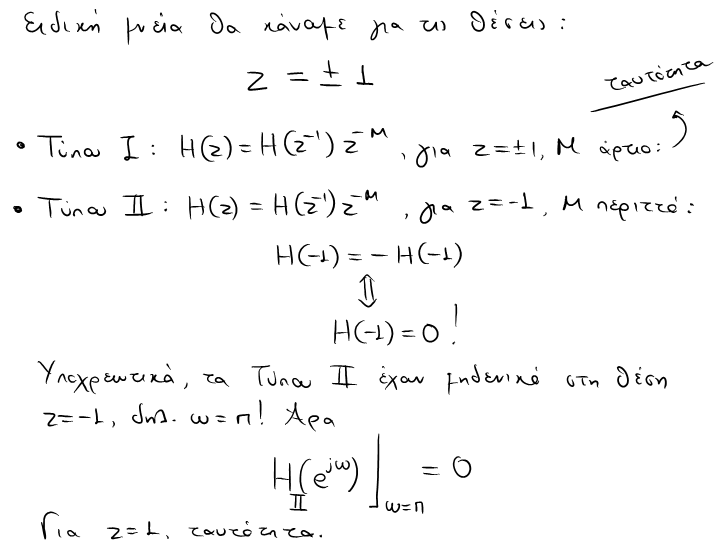 Ειδική μνεία θα κάναμε για τις θέσεις:
z = ± 1
ταυτότητα
• Τύπου I: H(z) = H(z⁻¹) z⁻ᴹ, για z=±1, M άρτιο:
• Τύπου II: H(z) = H(z⁻¹) z⁻ᴹ, για z=-1, M περιττό:
H(-1) = - H(-1)
⇕
H(-1) = 0 !
Υποχρεωτικά, τα Τύπου II έχουν μηδενικό στη θέση
z=-1, δηλ. ω=π! Άρα
H_II(e^{jω})|_{ω=π} = 0
Για z=1, ταυτότητα.